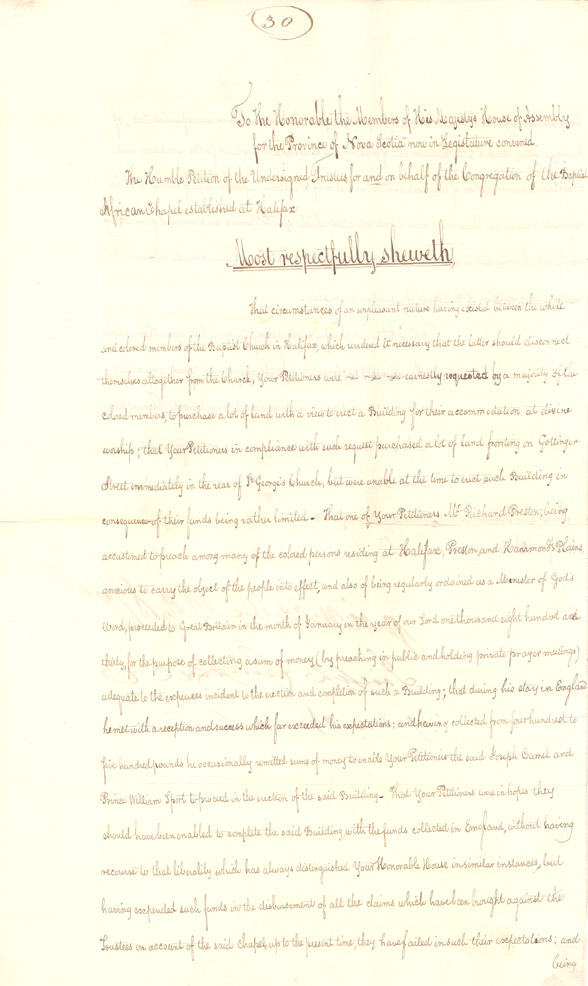 30
To the Honorable the Members of His Majestys House of Assembly
for the Province of Nova Scotia now in Legislature convened.
The Humble Petition of the Undersigned Trustees for and on behalf of the Congregation of the Baptist
African Chapel established at Halifax
Most respectfully sheweth,
That circumstances of an unpleasant nature having existed between the white
and colored members of the Baptist Church in Halifax, which rendered it necessary that the latter should disconnect
themselves altogether from the Church, Your Petitioners were earnestly requested by a majority of the
colored members, to purchase a lot of land with a view to erect a Building for their accommodation at divine
worship; that Your Petitioners in compliance with such request purchased a lot of land fronting on Gottingen
Street immediately in the rear of St. George's Church, but were unable at the time to erect such Building in
consequence of their funds being rather limited - That one of Your Petitioners Mr. Richard Preston, being
accustomed to preach among many of the colored persons residing at Halifax, Preston, and Hammond's Plains,
anxious to carry the object of the people into effect, and also of being regularly ordained as a Minister of God's
Word, proceeded to Great Britain in the month of January in the year of our Lord one thousand eight hundred and
thirty, for the purpose of collecting a sum of money (by preaching in public and holding private prayer meetings)
adequate to the expences incident to the erection and completion of such a Building; that during his stay in England
he met with a reception and success which far exceeded his expectations; and having collected from four hundred to
five hundred pounds he occasionally remitted sums of money to enable Your Petitioners the said Joseph Carrel and
Prince William Sport to proceed in the erection of the said Building - That Your Petitioners were in hopes they
should have been enabled to complete the said Building, with the funds collected in England, without having
recourse to that liberality which has always distinguished Your Honorable House in similar instances, but
having expended such funds in the disbursement of all the claims which have been brought against the
Trustees on account of the said Chapel, up to the present time, they have failed in such their expectations; and
being